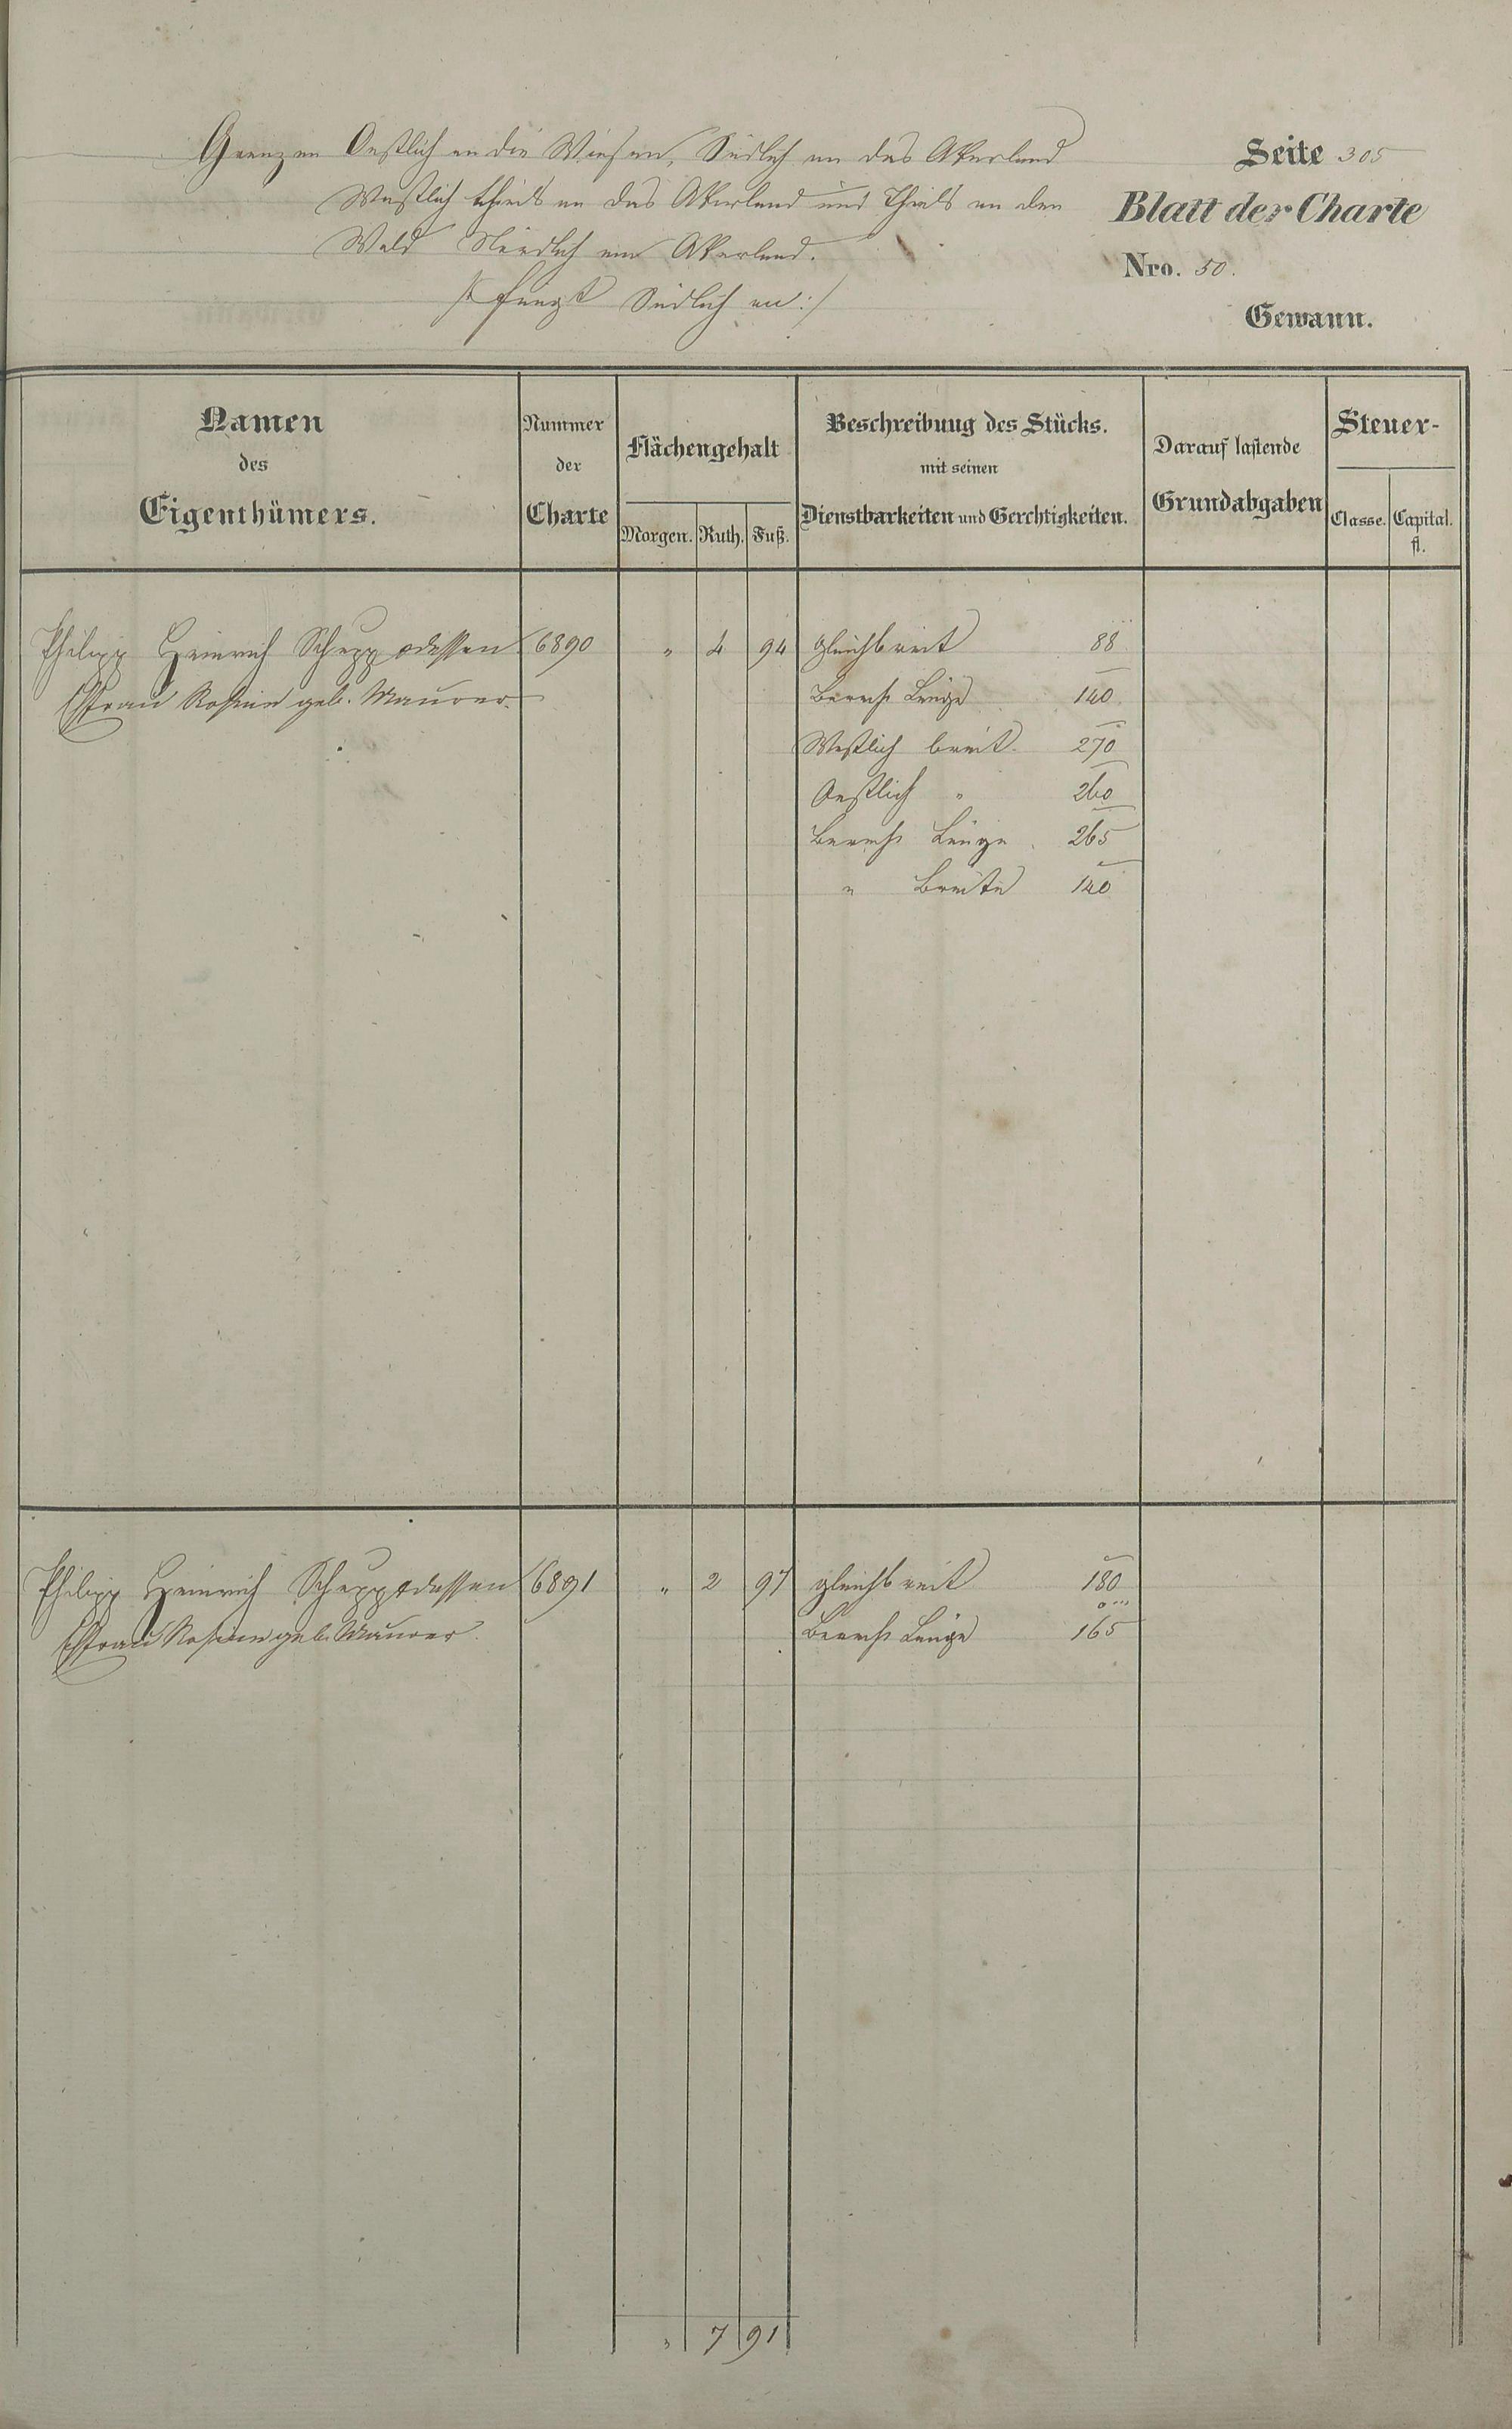 Grenzen Oestlich an die Wiesen, Südlich an das Akerland
Westlich theils an das Akerland und Theils an den
Wald Nördlich am Akerland.
/: fangt Südlich an :/
Seite 305
Blatt der Charte
Nro. 50.
Gewann.
Namen
des
Eigenthümers.
Nummer
der
Charte
Flächengehalt
Morgen. Ruth. Fuß.
Beschreibung des Stücks.
mit seinen
Dienstbarkeiten und Gerchtigkeiten.
Darauf lastende
Grundabgaben
Steuer-
Classe. Capital.
fl.
Philipp Heinrich Schupp dessen 6890 " 4 94 gleichbreit 88
Ehfrau Rosine geb. Maurer. Berech Länge 140
Westlich breit. 270
Oestlich " 260
Berech Länge 265
" Breite 140
Philipp Heinrich Schupp dessen 6891 " 2 97 gleichbreit 180
Ehfrau Rosine geb. Maurer. Berech Länge 165
" 7 91